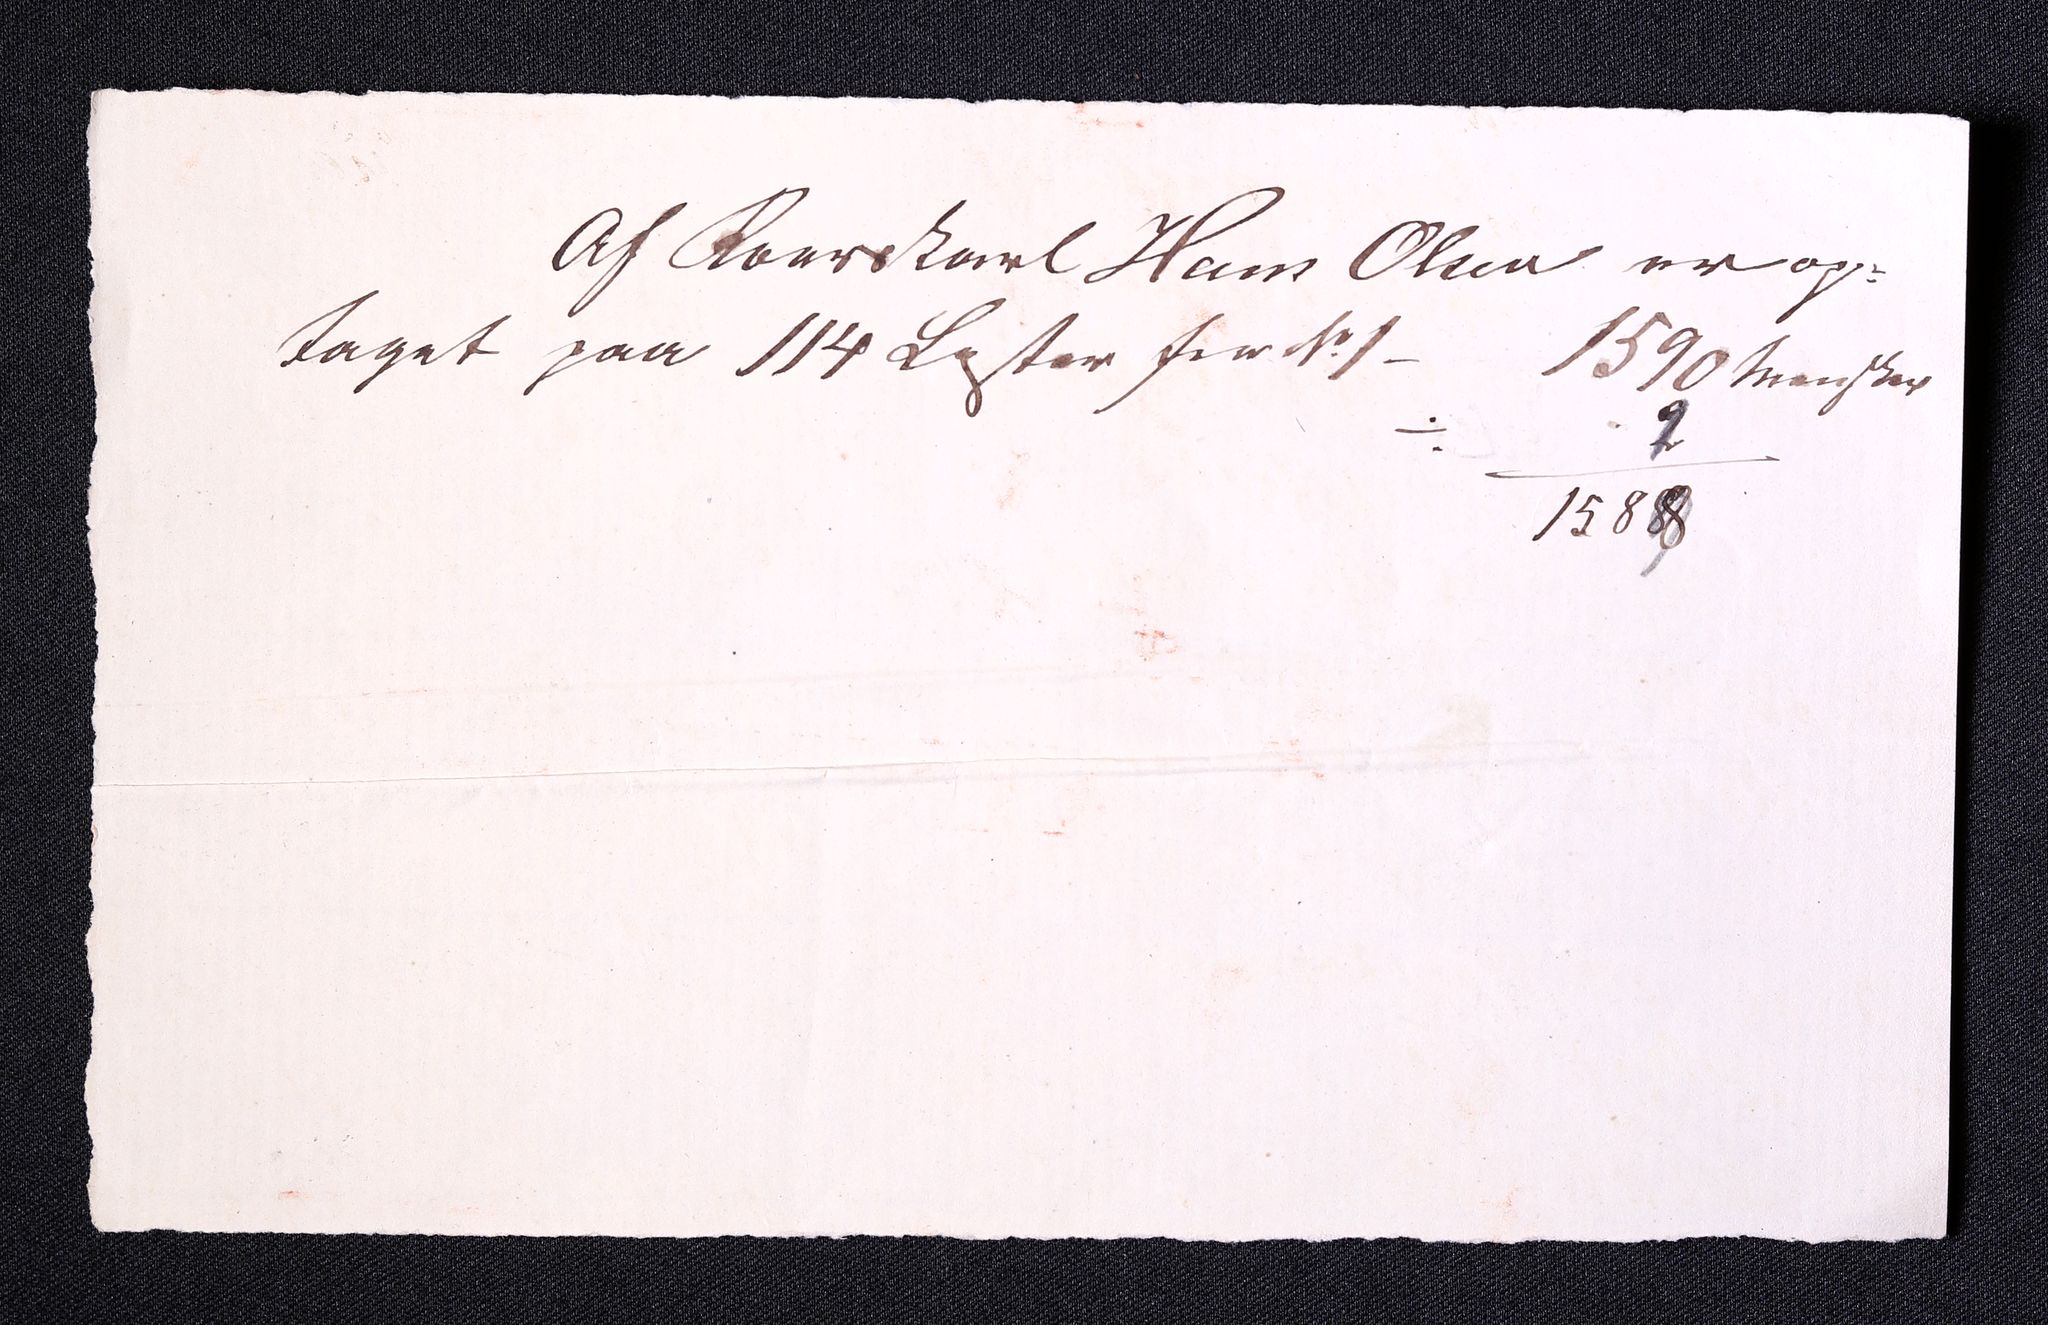 Af Roerskarl Hans Olsen er op=
taget paa 114 Lister fra No 1 – 1590 Mensker
÷ 2
1588